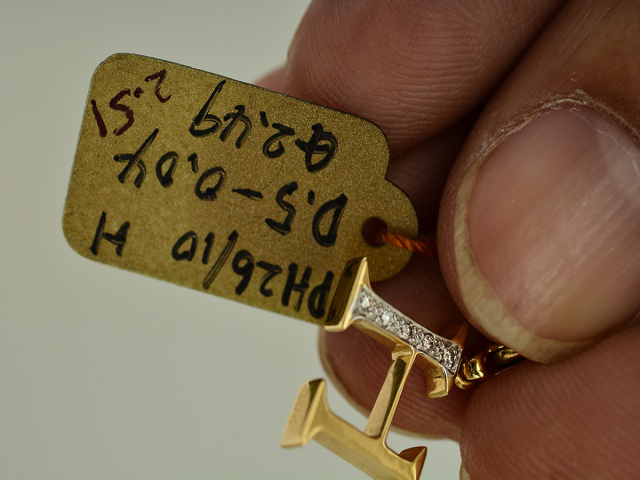 PH26/10 H
D.5-0.04
G2.49
2.51